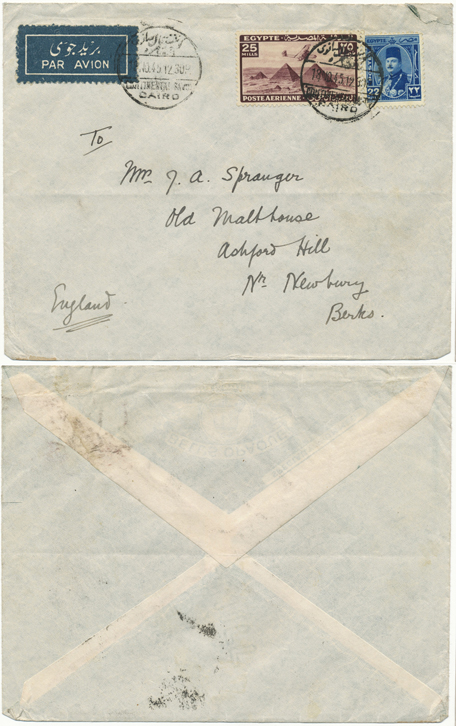 بريد جوى
PAR AVION
CONTINENTAL SAVOY
CAIRO
EGYPTE
25
MILLS
٢٥
POSTE AERIENNE
CAIRO
EGYPTE
22
٢٢
To
Mrs J. A. Spranger
Old Malthouse
Ashford Hill
Nr Newbury
Berks.
England